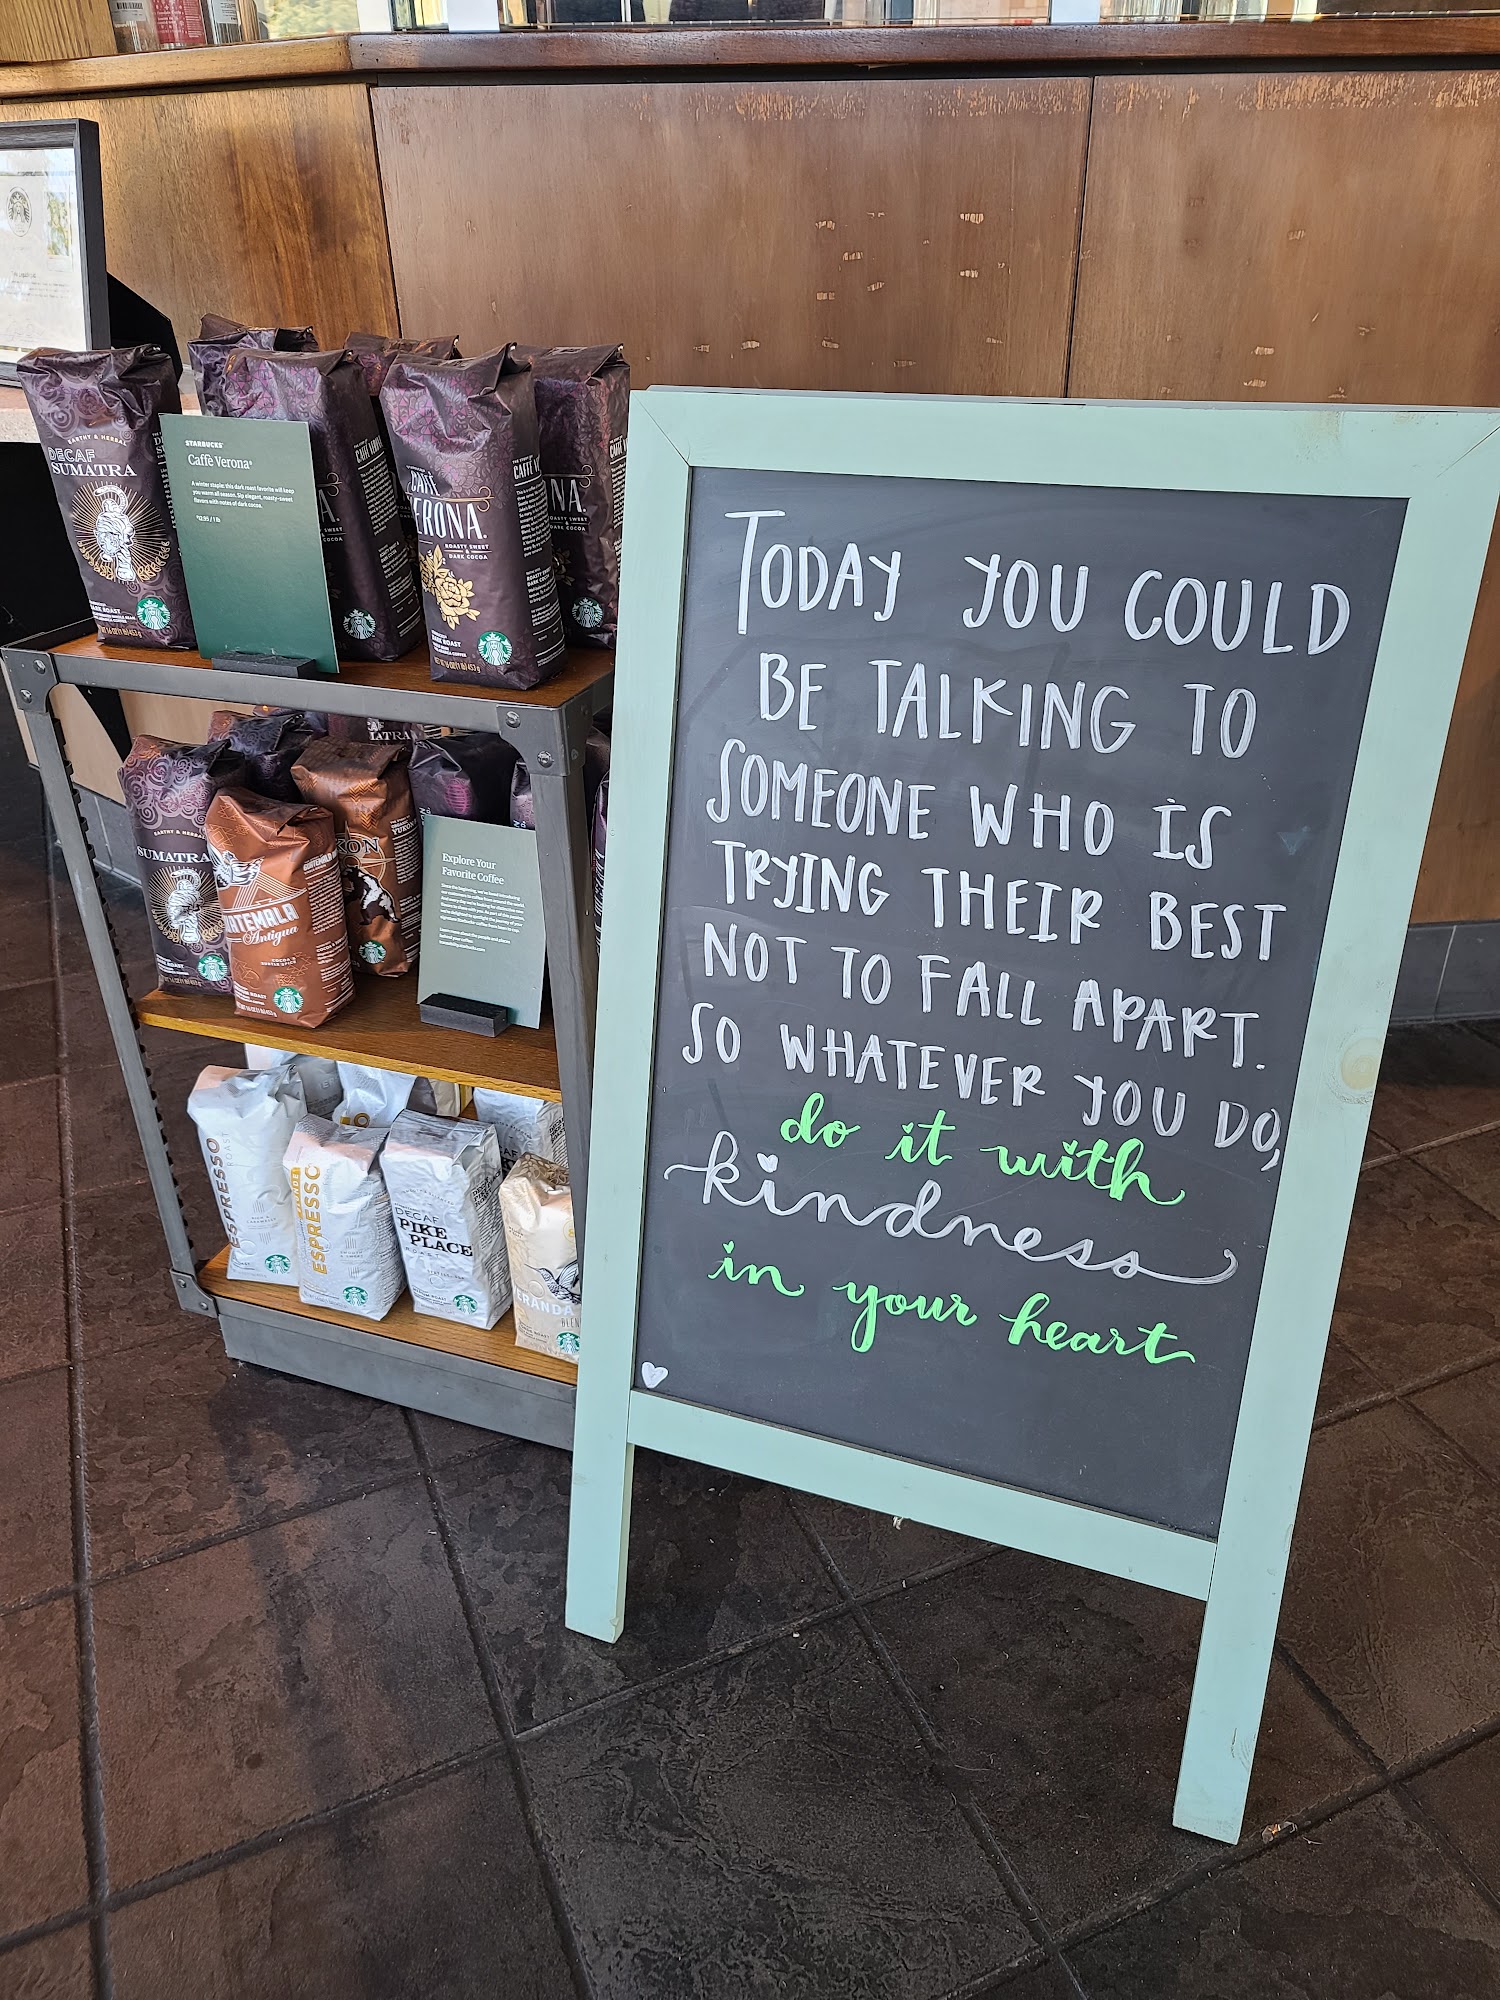 TODAY YOU COULD
BE TALKING TO
SOMEONE WHO IS
TRYING THEIR BEST
NOT TO FALL APART.
SO WHATEVER YOU DO,
do it with
kindness
in your heart
EARTHY & HERBAL
DECAF
SUMATRA
DARK ROAST
STARBUCKS
Caffè Verona
A winter staple: this dark roast favorite will keep
you warm all season. Sip elegant, roasty-sweet
flavors with notes of dark cocoa.
$12.95 / 1 lb
CAFFÈ
VERONA.
ROASTY SWEET
&
DARK COCOA
DARK ROAST
EARTHY & HERBAL
SUMATRA
GUATEMALA
Antigua
COCOA &
YUKON
Explore Your
Favorite Coffee
ESPRESSO
ROAST
ESPRESSO
DECAF
PIKE
PLACE
ROAST
VERANDA
BLEND